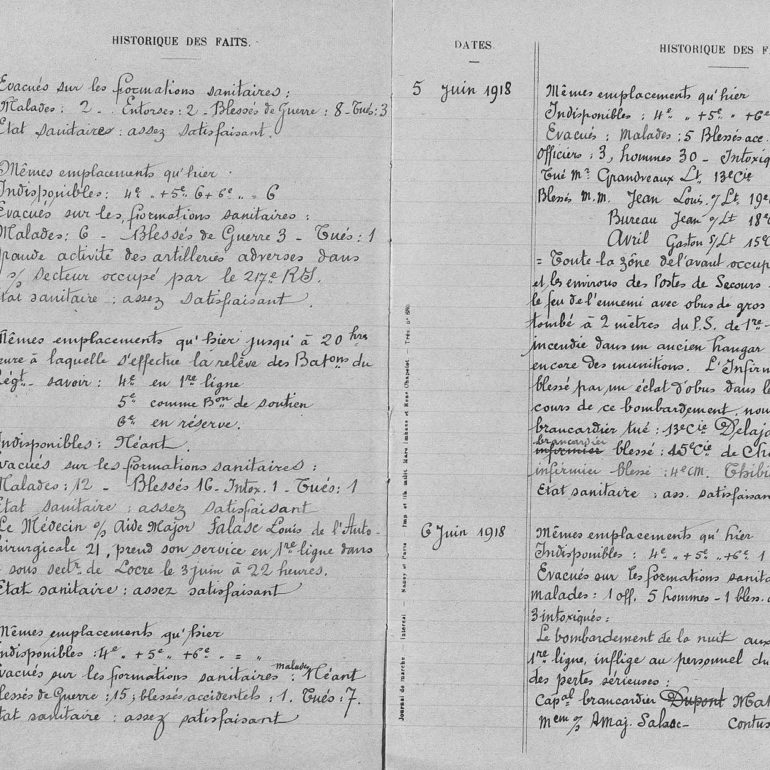 HISTORIQUE DES FAITS.
Evacués sur les formations sanitaires :
Malades : 2 - Entorses : 2 - Blessés de Guerre : 8 - Tués : 3
Etat sanitaire : assez satisfaisant.
Mêmes emplacements qu'hier
Indisponibles : 4e " + 5e 6 + 6e " " 6
Evacués sur les formations sanitaires :
Malades : 6 - Blessés de Guerre 3 - Tués : 1
grande activité des artilleries adverses dans
s/ Secteur occupé par le 217e RI.
Etat sanitaire : assez satisfaisant.
Mêmes emplacements qu'hier jusqu'à 20 hres
heure à laquelle s'effectue la relève des Batons du
Régt - savoir : 4e en 1re ligne
5e comme Bon de soutien
6e en réserve.
Indisponibles : Néant.
Evacués sur les formations sanitaires :
Malades : 12 - Blessés 16 - Intox. 1 - Tués : 1
Etat sanitaire : assez satisfaisant
Le Médecin s/ Aide Major Falase Louis de l'Auto-
chirurgicale 21, prend son service en 1re ligne dans
sous sectr de Locre le 3 juin à 22 heures.
Etat sanitaire : assez satisfaisant
Mêmes emplacements qu'hier
Indisponibles : 4e " + 5e " + 6e " = "
Evacués sur les formations sanitaires malades : Néant
Blessés de Guerre : 15 ; blessés accidentels : 1. Tués : 7.
Etat sanitaire : assez satisfaisant
DATES
5 Juin 1918
6 Juin 1918
Journal de marche — Internat — Nancy et Paris
HISTORIQUE DES FA
Mêmes emplacements qu'hier
Indisponibles : 4e " " + 5e " + 6e
Evacués : Malades : 5 Blessés acc.
Officiers : 3, hommes 30 - Intoxiq
Tué Mr Grandveaux Lt. 13e Cie
Blessés M.M. Jean Louis s/Lt. 19e
Bureau Jean s/Lt 18e C
Avril Gaston s/Lt 15e C
= Toute la zône de l'avant occup
et les environs des Postes de Secours
le feu de l'ennemi avec obus de gros
tombé à 2 mètres du P.S. de 1re
incendie dans un ancien hangar
encore des munitions. L'Infirm
blessé par un éclat d'obus dans le
cours de ce bombardement, nou
brancardier tué : 13e Cie Delajo
brancardier
infirmier blessé : 15e Cie de Cha
infirmier blessé : 4e CM. Thibi
Etat sanitaire : ass. satisfaisan
Mêmes emplacements qu'hier
Indisponibles : 4e " + 5e " + 6e " 1
Evacués sur les formations sanita
malades : 1 off. 5 hommes - 1 bless. a
3 intoxiqués :
Le bombardement de la nuit aux
1re ligne, inflige au personnel du
des pertes sérieuses :
Capal brancardier Dupont Mal
mem s/ Amaj. Salasc - contus